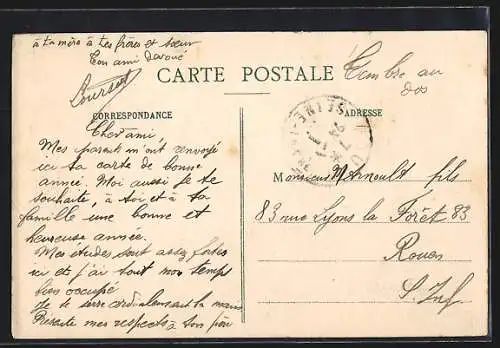 à ta mère à tes frères et sœur
Ton ami dévoué
CARTE POSTALE
Timbre au
dos
CORRESPONDANCE
ADRESSE
SEINE
Cher ami,
Mes parents m'ont renvoyé
ici ta carte de bonne
année. Moi aussi je te
souhaite, à toi et à ta
famille une bonne et
heureuse année.
Mes études sont assez fortes
ici et j'ai tout mon temps
bien occupé
Je te serre cordialement la main
Présente mes respects à ton père
Monsieur fils
83 rue Lyons la Forêt 83
Rouen
S. Inf